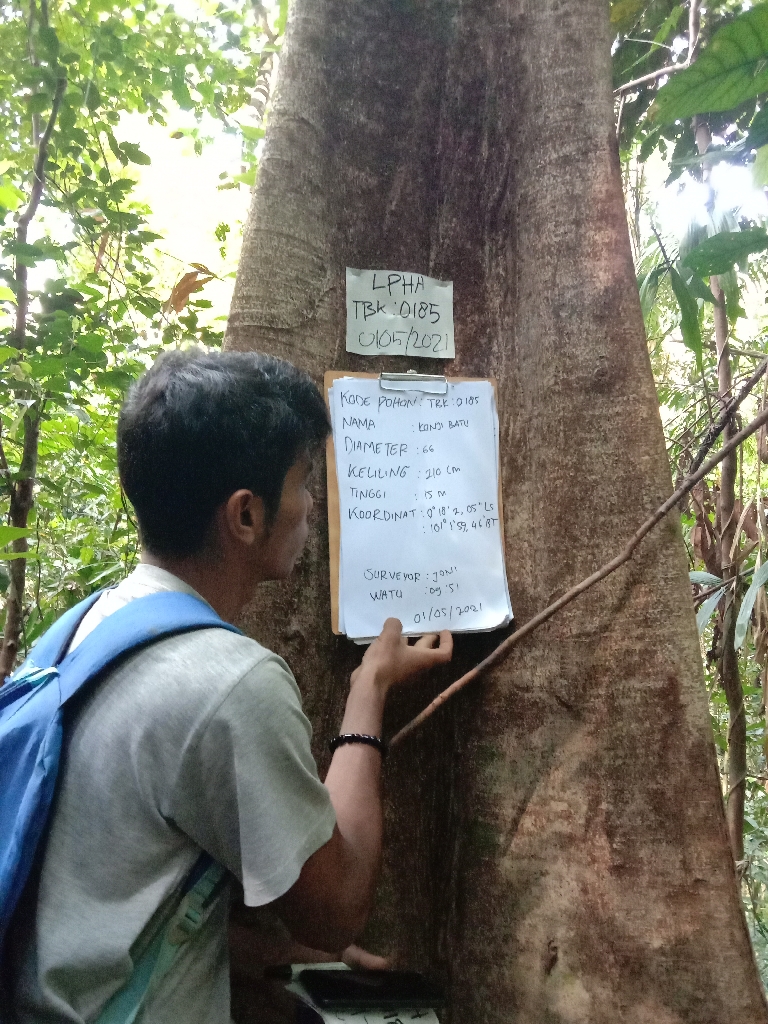 LPHA
TBK : 0185
0105/2021
KODE POHON : TBK : 0185
NAMA : KONJI BATU
DIAMETER : 66
KELILING : 210 Cm
TINGGI : 15 m
KOORDINAT : 0° 18' 2, 05" LS
: 101° 1' 59, 46" BT
SURVEYOR : JONI
WATU : 09 : 51
01/05/2021